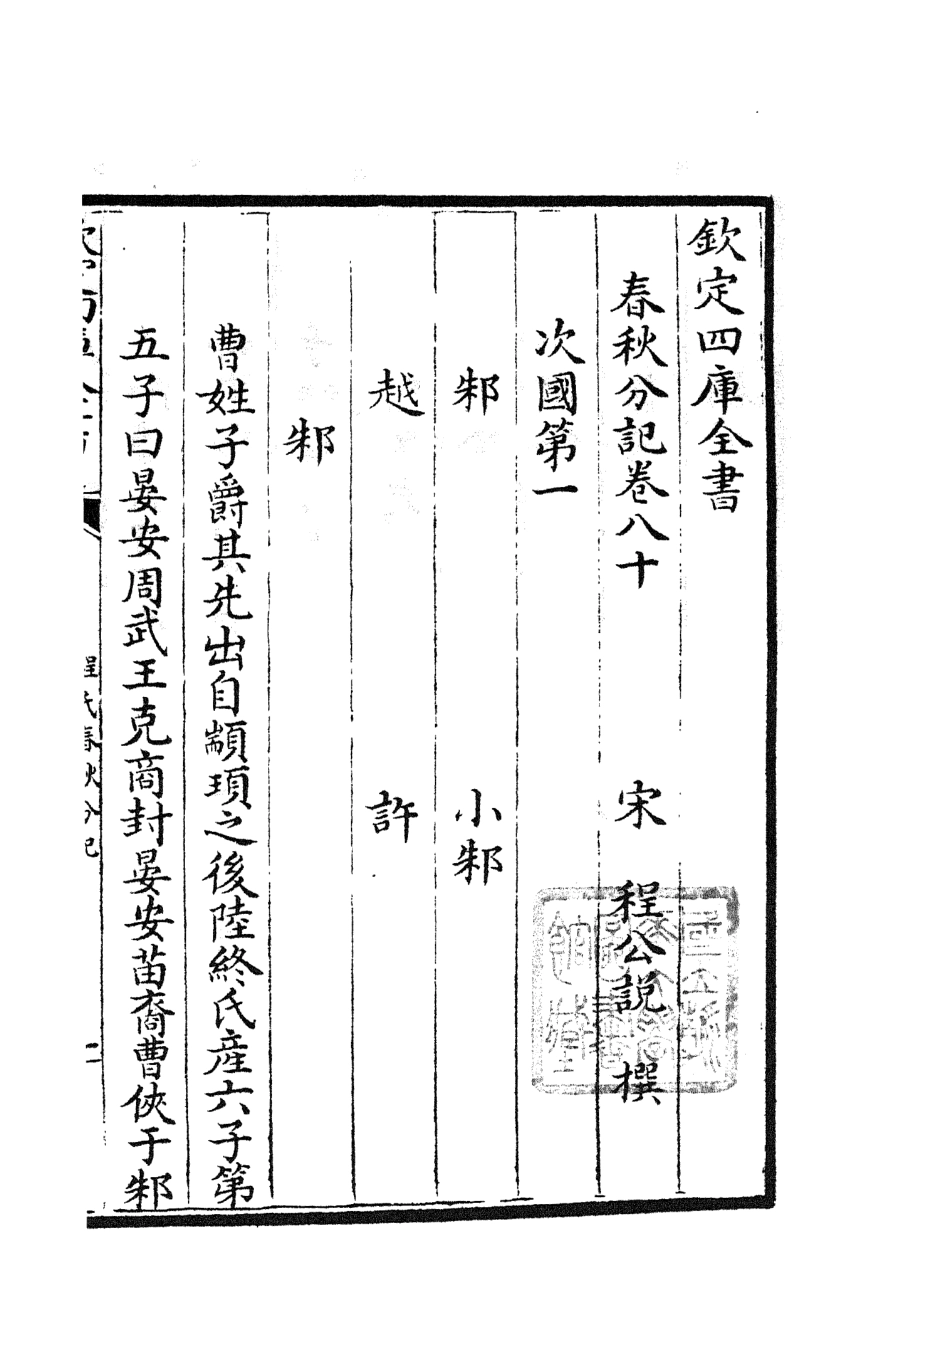 欽定四庫全書
春秋分記卷八十　　　宋　程公說　撰
次國第一
邾　　　小邾
越　　　許
邾
曹姓子爵其先出自顓頊之後陸終氏產六子第
五子曰晏安周武王克商封晏安苗裔曹俠于邾
程氏春秋分記